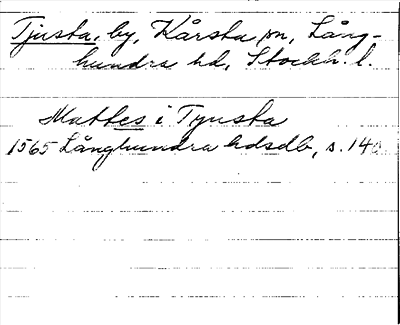 Tjusta, by, Kårsta sn, Lång-
hundra hd, Stockh. l.
Mattes i Tyusta
1565 Långhundra hdsdb, s. 140